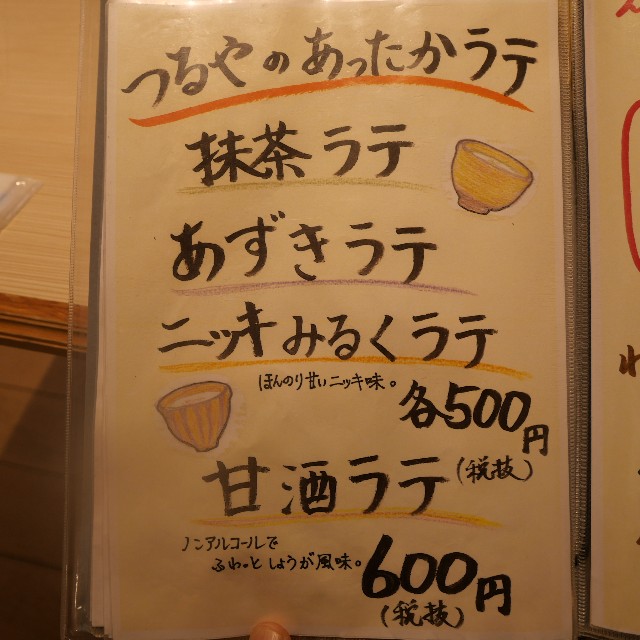 つるやのあったかラテ
抹茶ラテ
あずきラテ
ニッキみるくラテ
ほんのり甘いニッキ味。
各500円
(税抜)
甘酒ラテ
ノンアルコールで
ふわっとしょうが風味。
600円
(税抜)